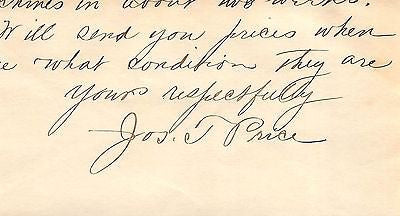 chines in about two weeks.
Will send you prices when
e what condition they are
yours respectfully
Jos. T Price